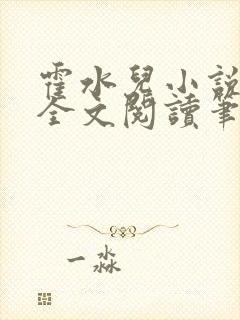 霍水兒小說
全文閱讀筆
一淼